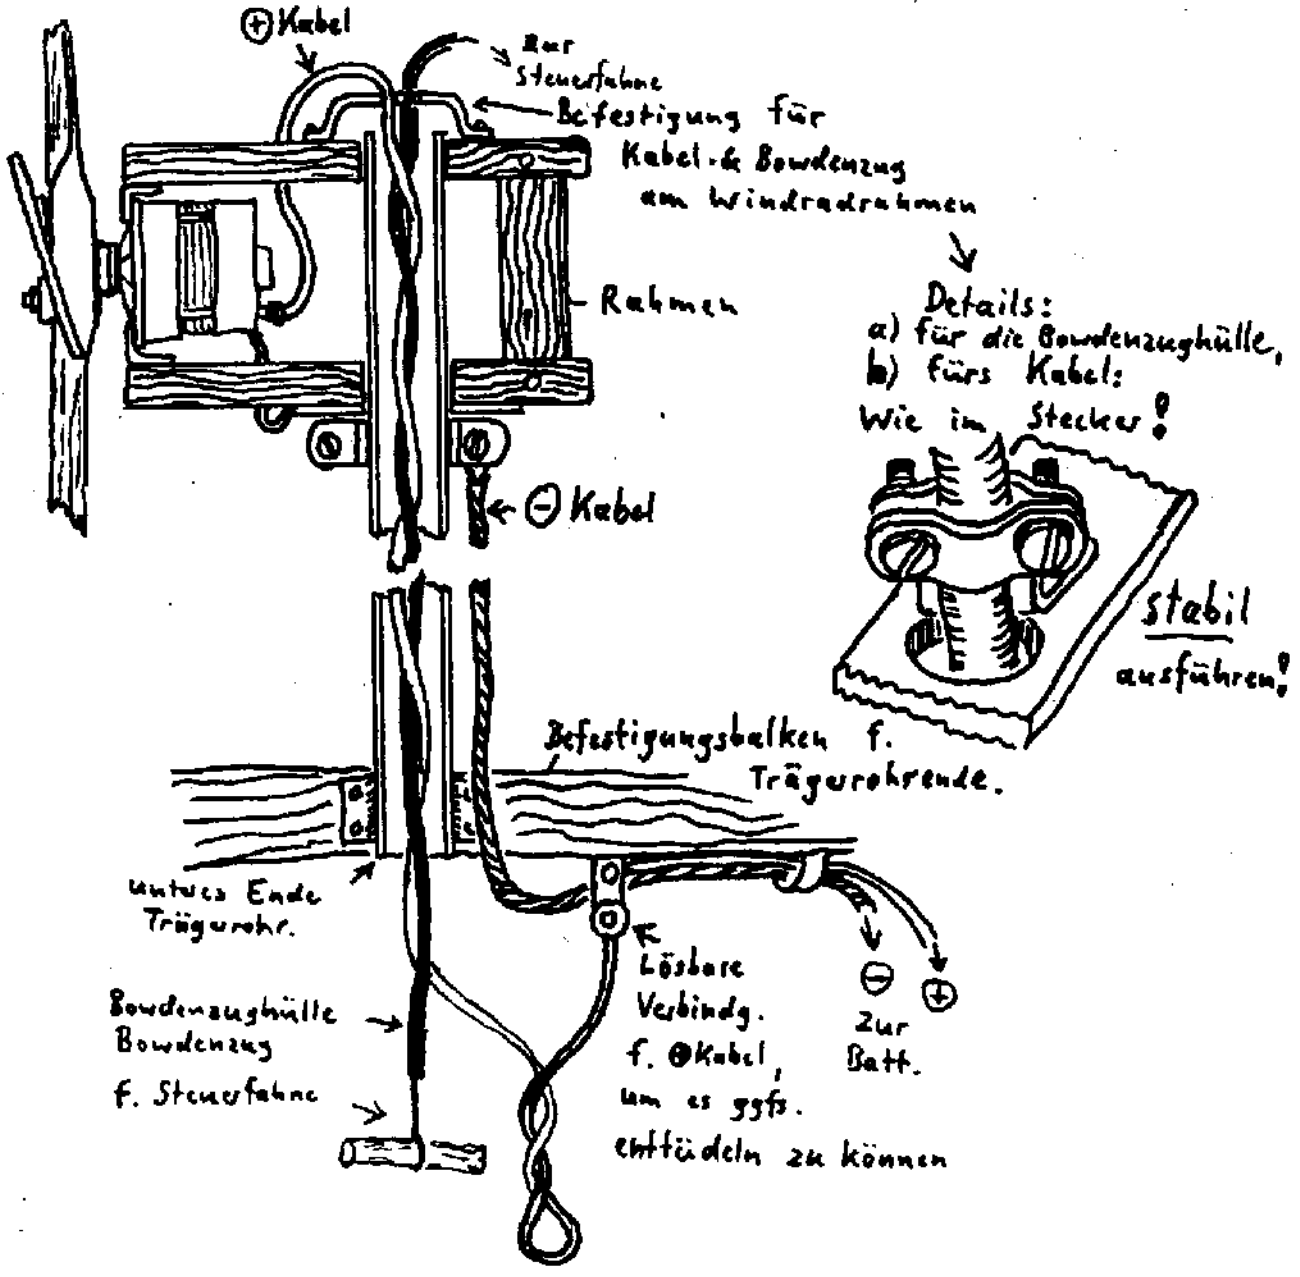 ⊕ Kabel
zur
Steuerfahne
Befestigung für
Kabel & Bowdenzug
am Windradrahmen
Rahmen
Details:
a) für die Bowdenzughülle,
b) fürs Kabel:
Wie im Stecker!
⊖ Kabel
stabil
ausführen!
Befestigungsbalken f.
Trägerrohrende.
unteres Ende
Trägerrohr.
Bowdenzughülle
Bowdenzug
f. Steuerfahne
Lösbare
Verbindg.
f. ⊕Kabel,
um es ggfs.
enttüdeln zu können
⊖ ⊕
zur
Batt.